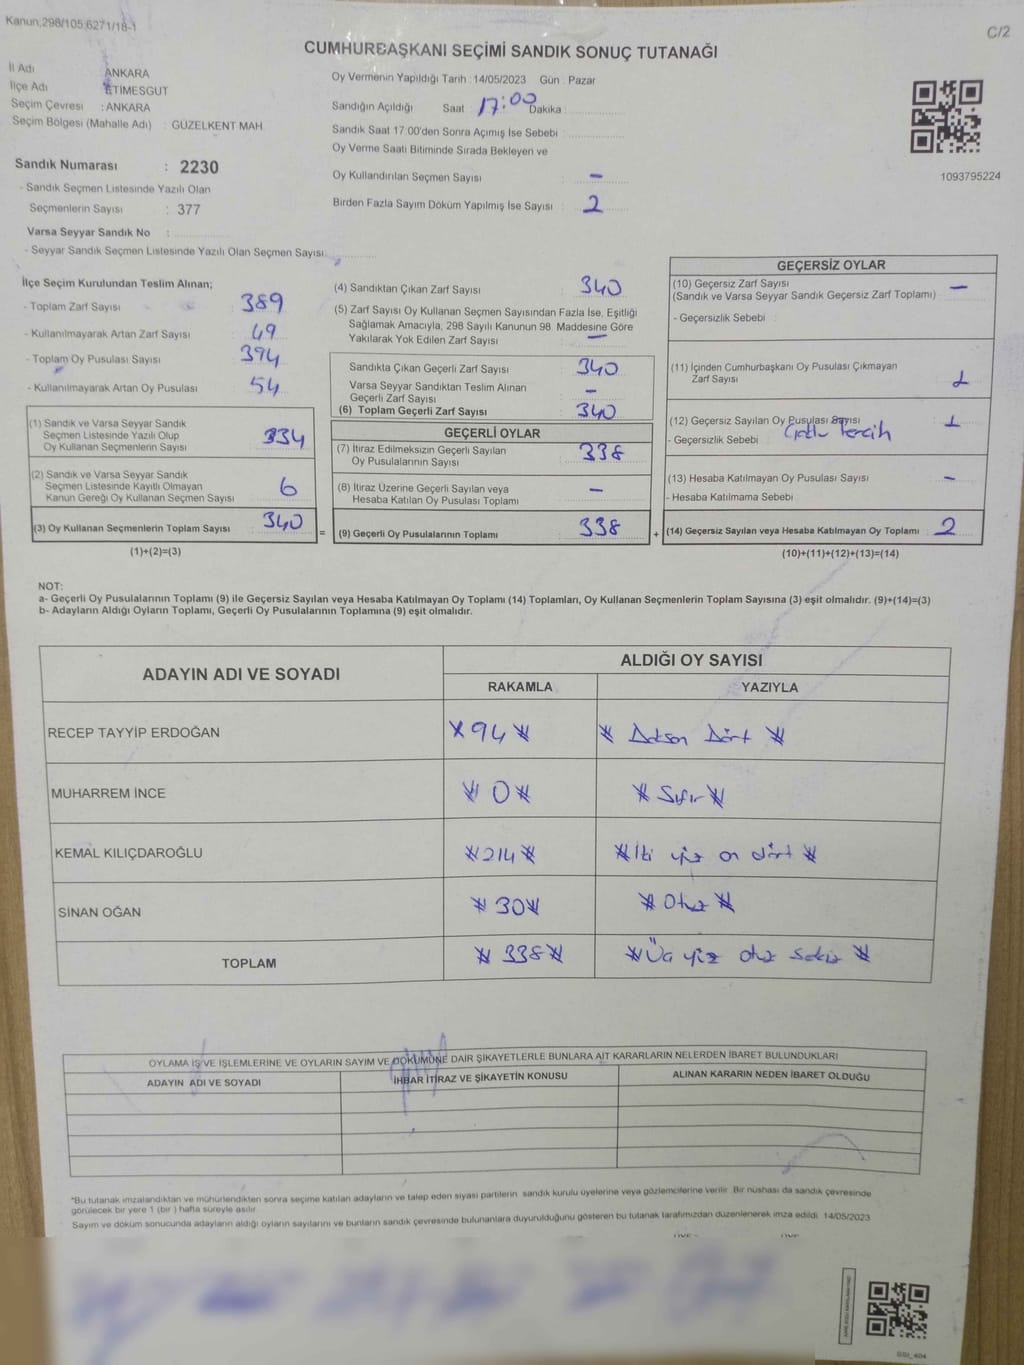 Kanun,298/105,6271/18-1
C/2
CUMHURBAŞKANI SEÇİMİ SANDIK SONUÇ TUTANAĞI
İl Adı ANKARA
İlçe Adı ETİMESGUT
Seçim Çevresi : ANKARA
Seçim Bölgesi (Mahalle Adı) : GÜZELKENT MAH
Oy Vermenin Yapıldığı Tarih : 14/05/2023 Gün : Pazar
Sandığın Açıldığı Saat : 17:00 Dakika :
Sandık Saat 17:00'den Sonra Açımış İse Sebebi :
Oy Verme Saati Bitiminde Sırada Bekleyen ve
Oy Kullandırılan Seçmen Sayısı : -
Birden Fazla Sayım Döküm Yapılmış İse Sayısı : 2
1093795224
Sandık Numarası : 2230
- Sandık Seçmen Listesinde Yazılı Olan
Seçmenlerin Sayısı : 377
Varsa Seyyar Sandık No :
- Seyyar Sandık Seçmen Listesinde Yazılı Olan Seçmen Sayısı:
İlçe Seçim Kurulundan Teslim Alınan;
- Toplam Zarf Sayısı : 389
- Kullanılmayarak Artan Zarf Sayısı : 49
- Toplam Oy Pusulası Sayısı : 394
- Kullanılmayarak Artan Oy Pusulası : 54
(1) Sandık ve Varsa Seyyar Sandık
Seçmen Listesinde Yazılı Olup
Oy Kullanan Seçmenlerin Sayısı 334
(2) Sandık ve Varsa Seyyar Sandık
Seçmen Listesinde Kayıtlı Olmayan
Kanun Gereği Oy Kullanan Seçmen Sayısı : 6
(3) Oy Kullanan Seçmenlerin Toplam Sayısı : 340 =
(1)+(2)=(3)
(4) Sandıktan Çıkan Zarf Sayısı : 340
(5) Zarf Sayısı Oy Kullanan Seçmen Sayısından Fazla İse, Eşitliği
Sağlamak Amacıyla, 298 Sayılı Kanunun 98. Maddesine Göre
Yakılarak Yok Edilen Zarf Sayısı : -
Sandıkta Çıkan Geçerli Zarf Sayısı : 340
Varsa Seyyar Sandıktan Teslim Alınan
Geçerli Zarf Sayısı : -
(6) Toplam Geçerli Zarf Sayısı : 340
GEÇERLİ OYLAR
(7) İtiraz Edilmeksizin Geçerli Sayılan
Oy Pusulalarının Sayısı : 338
(8) İtiraz Üzerine Geçerli Sayılan veya
Hesaba Katılan Oy Pusulası Toplamı : -
(9) Geçerli Oy Pusulalarının Toplamı : 338 +
GEÇERSİZ OYLAR
(10) Geçersiz Zarf Sayısı : -
(Sandık ve Varsa Seyyar Sandık Geçersiz Zarf Toplamı)
- Geçersizlik Sebebi :
(11) İçinden Cumhurbaşkanı Oy Pusulası Çıkmayan
Zarf Sayısı : 1
(12) Geçersiz Sayılan Oy Pusulası Sayısı : 1
- Geçersizlik Sebebi : Çoklu Tercih
(13) Hesaba Katılmayan Oy Pusulası Sayısı : -
- Hesaba Katılmama Sebebi
(14) Geçersiz Sayılan veya Hesaba Katılmayan Oy Toplamı : 2
(10)+(11)+(12)+(13)=(14)
NOT:
a- Geçerli Oy Pusulalarının Toplamı (9) ile Geçersiz Sayılan veya Hesaba Katılmayan Oy Toplamı (14) Toplamları, Oy Kullanan Seçmenlerin Toplam Sayısına (3) eşit olmalıdır. (9)+(14)=(3)
b- Adayların Aldığı Oyların Toplamı, Geçerli Oy Pusulalarının Toplamına (9) eşit olmalıdır.
ADAYIN ADI VE SOYADI ALDIĞI OY SAYISI
RAKAMLA YAZIYLA
RECEP TAYYİP ERDOĞAN 94 Doksan Dört
MUHARREM İNCE 0 Sıfır
KEMAL KILIÇDAROĞLU 214 İki yüz on dört
SİNAN OĞAN 30 Otuz
TOPLAM 338 Üç yüz otuz sekiz
OYLAMA İŞ VE İŞLEMLERİNE VE OYLARIN SAYIM VE DÖKÜMÜNE DAİR ŞİKAYETLERLE BUNLARA AİT KARARLARIN NELERDEN İBARET BULUNDUKLARI
ADAYIN ADI VE SOYADI İHBAR İTİRAZ VE ŞİKAYETİN KONUSU ALINAN KARARIN NEDEN İBARET OLDUĞU
*Bu tutanak imzalandıktan ve mühürlendikten sonra seçime katılan adayların ve talep eden siyasi partilerin sandık kurulu üyelerine veya gözlemcilerine verilir. Bir nüshası da sandık çevresinde
görülecek bir yere 1 (bir ) hafta süreyle asılır.
Sayım ve döküm sonucunda adayların aldığı oyların sayılarını ve bunların sandık çevresinde bulunanlara duyurulduğunu gösteren bu tutanak tarafımızdan düzenlenerek imza edildi. 14/05/2023